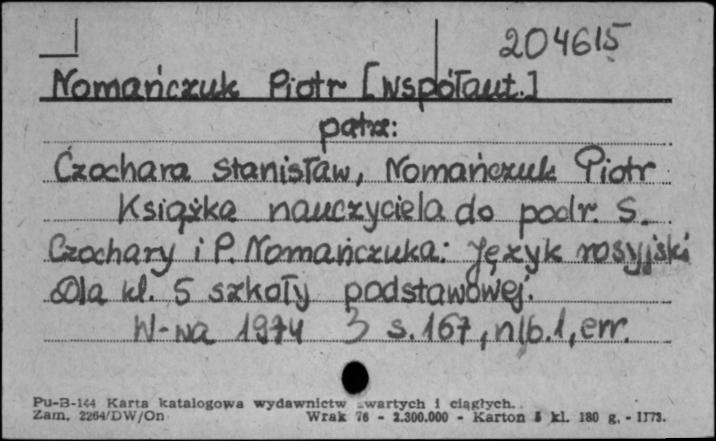 204615
Nomańczuk Piotr [współaut.]
patrz:
Czochara Stanisław, Nomańczuk Piotr
Książka nauczyciela do podr. S.
Czochary i P. Nomańczuka: Język rosyjski
Dla kl. 5 szkoły podstawowej.
W-wa 1974 3 s. 167, nlb. 1, err.
Pu-B-144 Karta katalogowa wydawnictw zwartych i ciągłych.
Zam. 2264/DW/On Wrak 76 - 2.300.000 - Karton kl. 180 g. - II73.